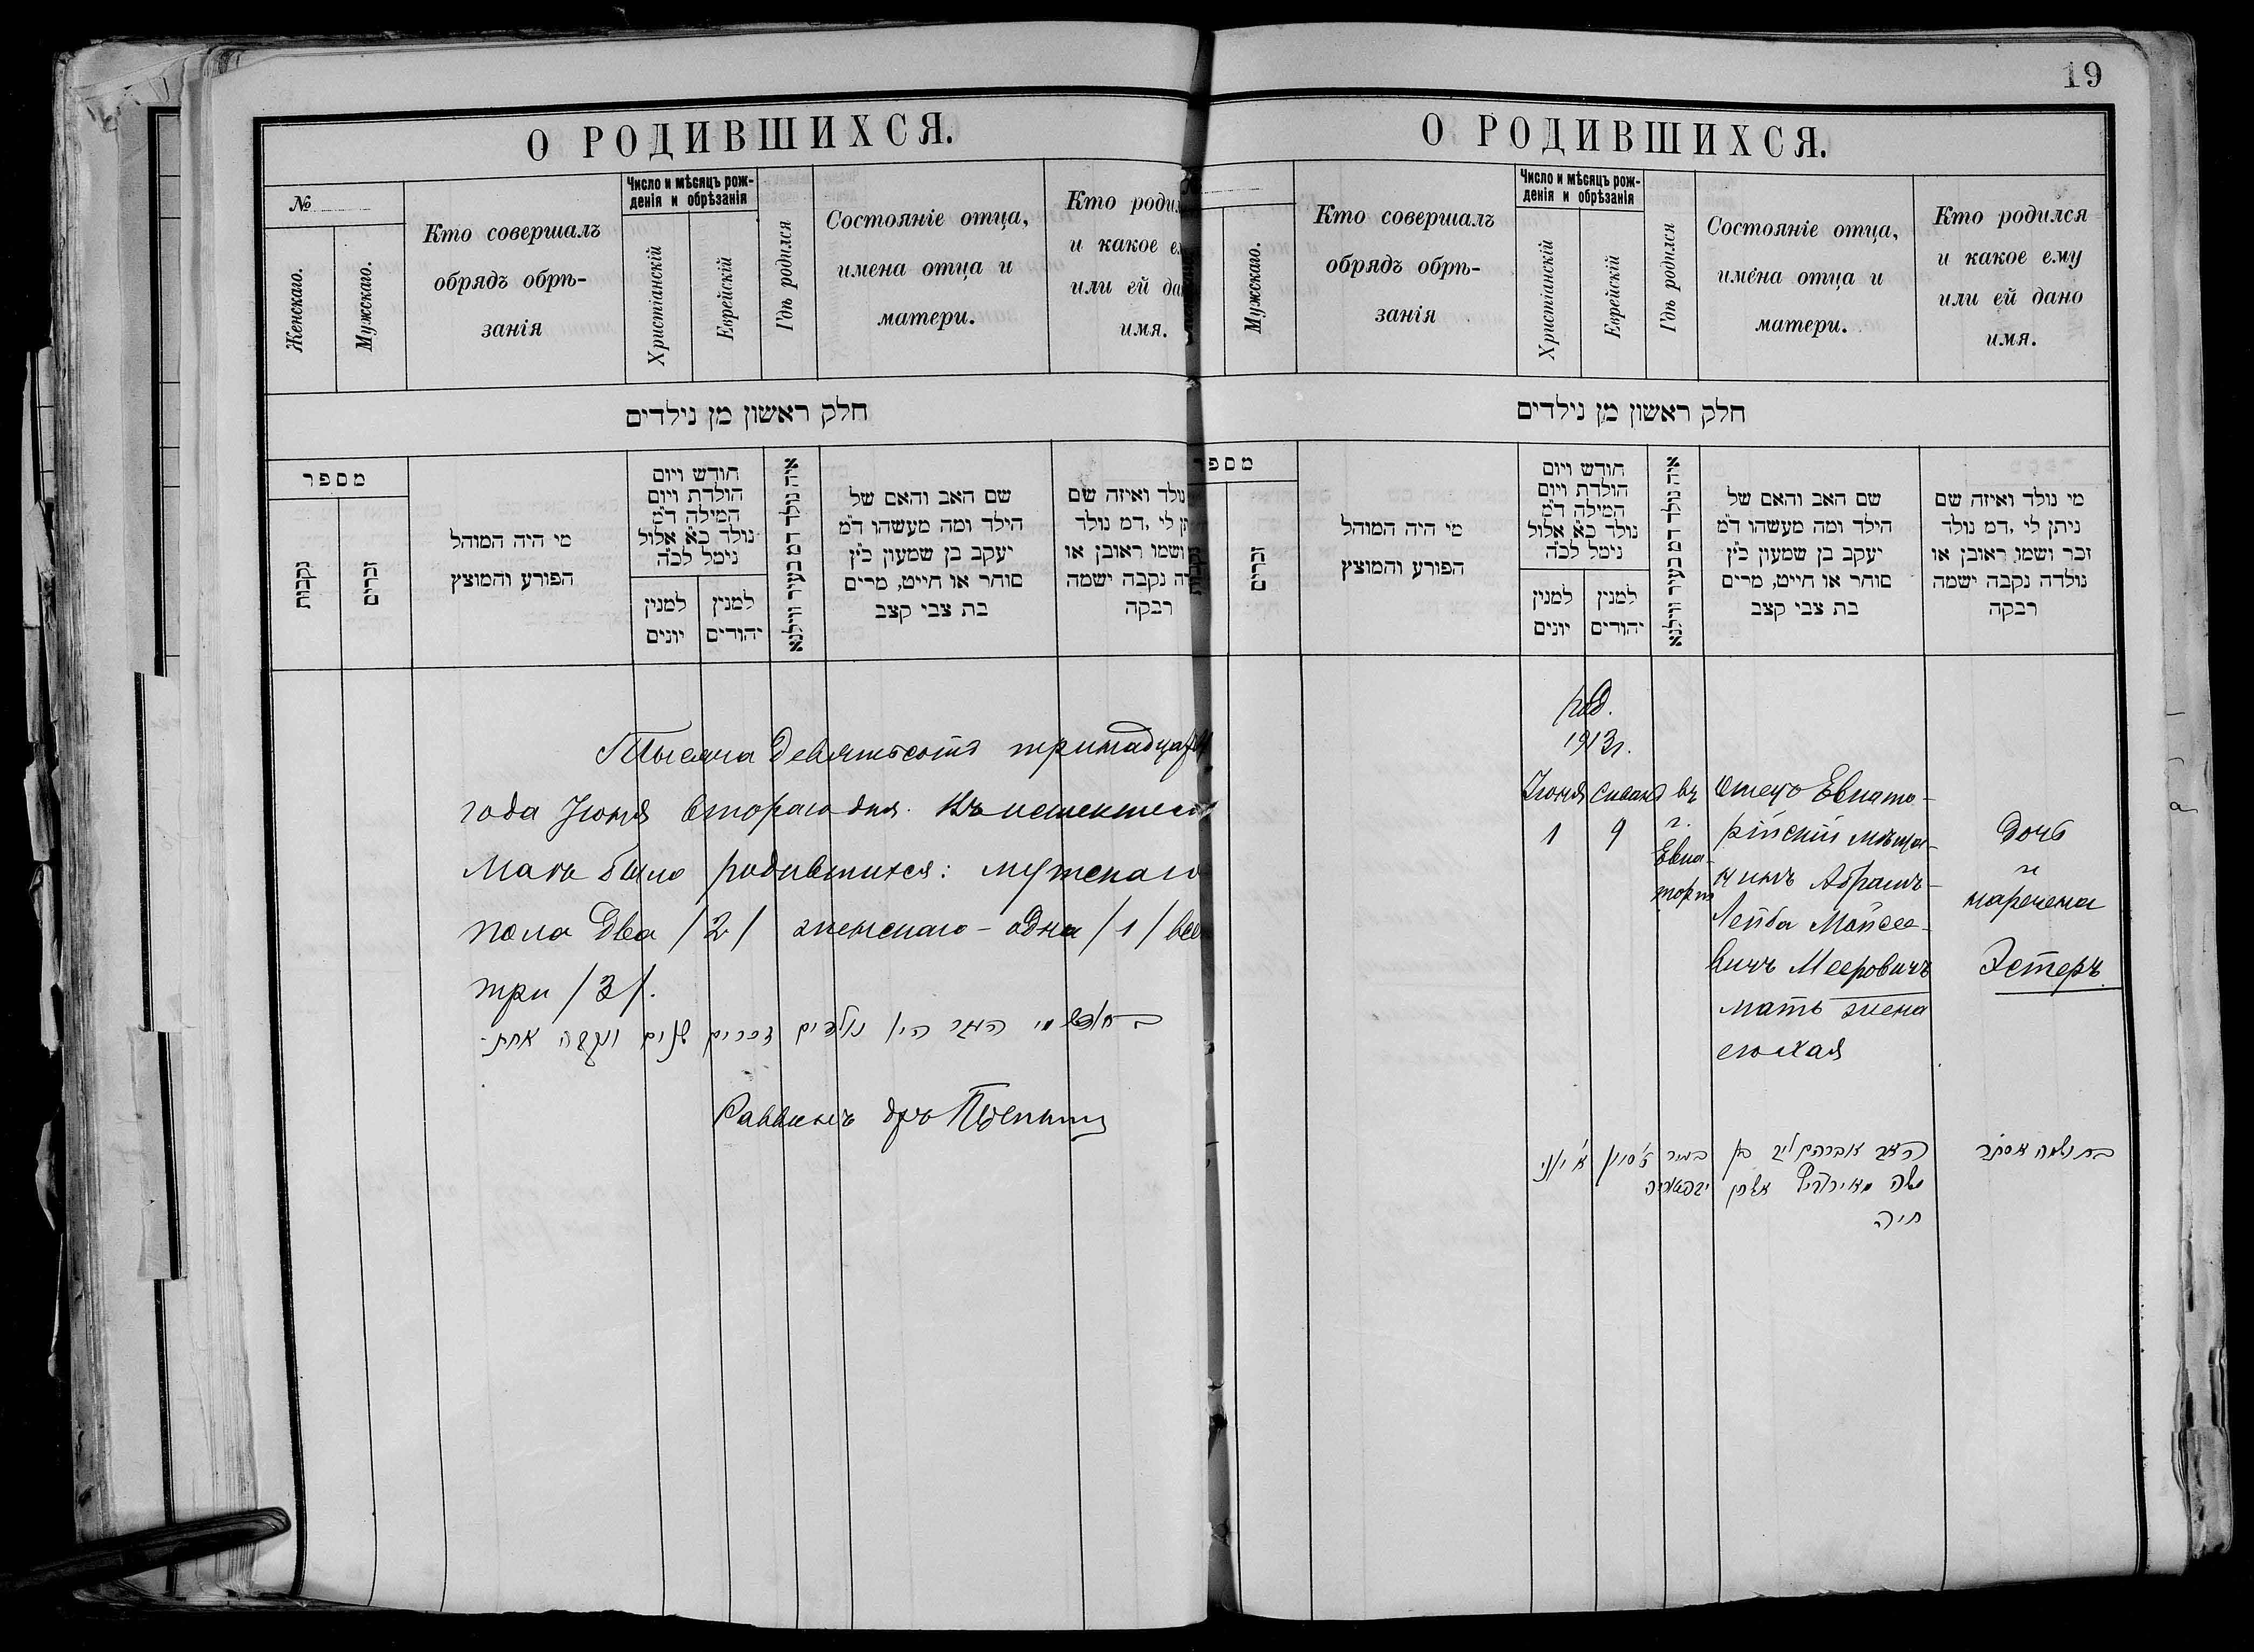 О РОДИВШИХСЯ.
№
Женскаго.
Мужскаго.
Кто совершалъ
обрядъ обрѣ-
занія
Число и мѣсяцъ рож-
денія и обрѣзанія
Христіанскій
Еврейскій
Гдѣ родился
Состояніе отца,
имена отца и
матери.
Кто
и какое
или ей
имя.
חלק ראשון מן נילדים
מספר
נקבות
זכרים
מי היה המוהל
הפורע והמוצץ
חודש ויום
הולדת ויום
המילה ד״מ
נולד כ״א אלול
נימל לכ״ה
למנין
יונים
למנין
יהודים
איה נולד דמ בעיר ווילנא
שם האב והאם של
הילד ומה מעשהו ד״מ
יעקב בן שמעון כ״ץ
סוחר או חייט, מרים
בת צבי קצב
נולד ואיזה שם
לי ,דמ נולד
ושמו ראובן או
נקבה ישמה
רבקה
Тысяча девятьсотъ
года Іюня второго дня. Въ
Маѣ было родившихся: мужскаго
пола два /2/ женскаго - одна /1/
три /3/.
נולדים זכרים שנים ונקבה אחת.
Раввинъ
19
О РОДИВШИХСЯ.
Мужскаго.
Кто совершалъ
обрядъ обрѣ-
занія
Число и мѣсяцъ рож-
денія и обрѣзанія
Христіанскій
Еврейскій
Гдѣ родился
Состояніе отца,
имена отца и
матери.
Кто родился
и какое ему
или ей дано
имя.
חלק ראשון מן נילדים
מספר
נקבות
זכרים
מי היה המוהל
הפורע והמוצץ
חודש ויום
הולדת ויום
המילה ד״מ
נולד כ״א אלול
נימל לכ״ה
למנין
יונים
למנין
יהודים
איה נולד דמ בעיר ווילנא
שם האב והאם של
הילד ומה מעשהו ד״מ
יעקב בן שמעון כ״ץ
סוחר או חייט, מרים
בת צבי קצב
מי נולד ואיזה שם
ניתן לי ,דמ נולד
זכר ושמו ראובן או
נולדה נקבה ישמה
רבקה
род.
1913г.
Іюня
1
Сивана
9
въ
г.
Евпа-
торіи
Отецъ Евпато-
рійскій мѣща-
нинъ Абрамъ-
Лейба Мойсее-
вичъ Мееровичъ
мать жена
его Хая
дочь
и
наречена
Эстеръ
א׳ יוני
סיון
בעיר
האב אברהם ליב בן
משה
חיה
בת ושמה אסתר